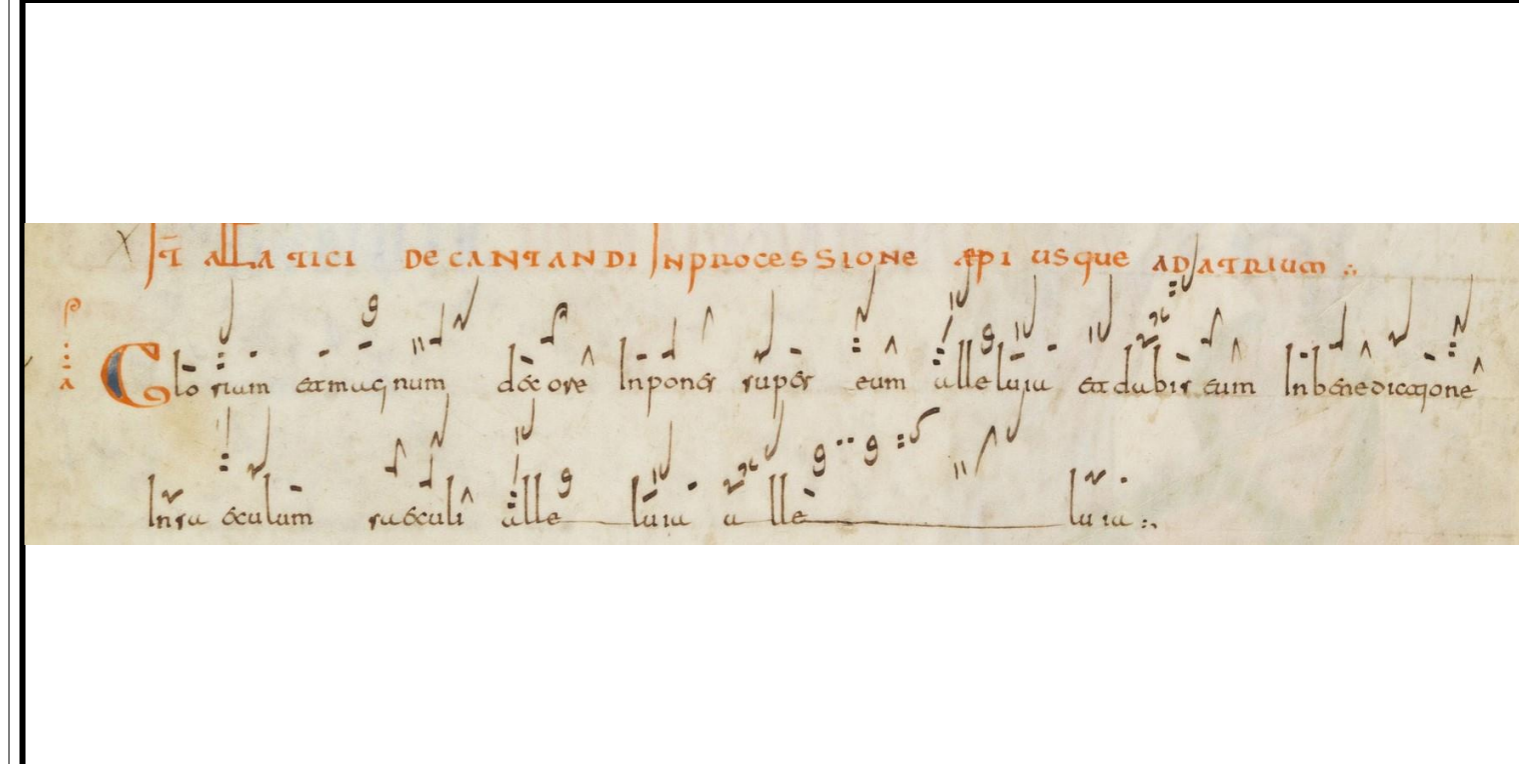 IT allatici decantandi In processione epi usque ad atrium
Gloriam et magnum decore Inpones super eum alleluia et dabis eum In benedictione
In saeculum saeculi alleluia alleluia